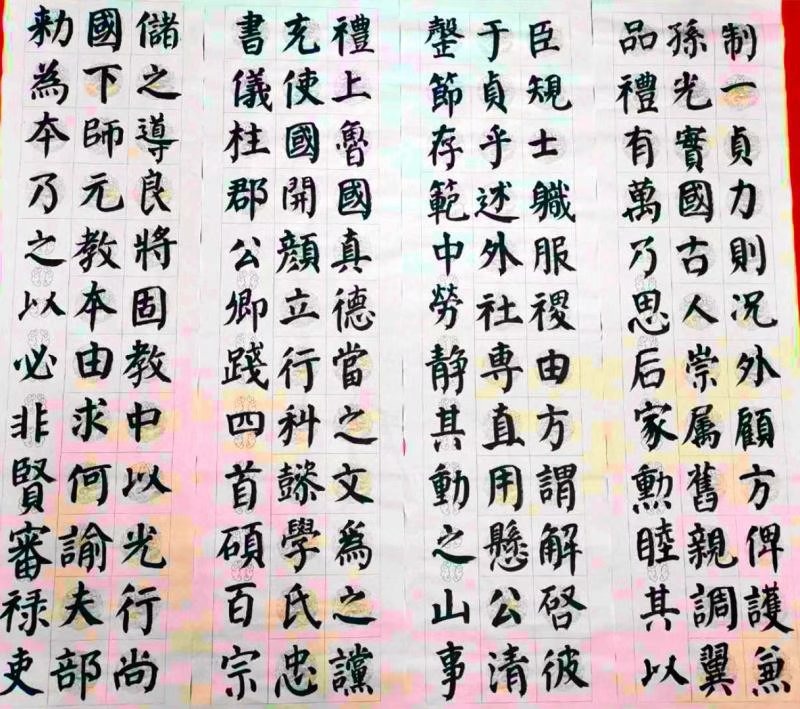 勅國儲
為下之
本師導
乃元良
之教將
以本固
必由教
非求中
賢何以
審諭光
禄夫行
吏部尚
書充禮
儀使上
柱國魯
郡開國
公顔真
卿立德
踐行當
四科之
首懿文
碩學為
百氏之
宗忠讜
罄于臣
節貞規
存乎士
範述職
中外服
勞社稷
静専由
其直方
動用謂
之懸解
山公啓
事清彼
品孫制
禮光一
有實貞
萬國力
乃古則
思人况
后崇外
家属顧
勲舊方
睦親俾
其調護
以翼兼